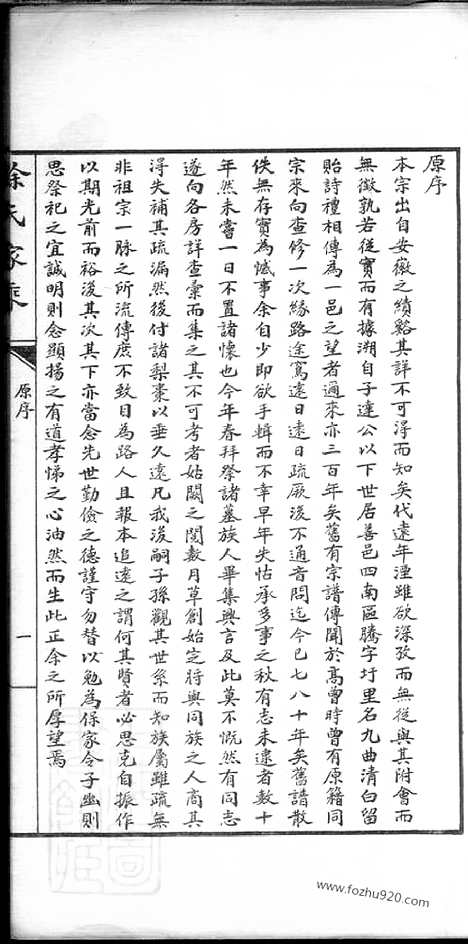 原序
本宗出自安徽之績谿其詳不可得而知矣代遠年湮雖欲深攷而無從與其附會而
無徵孰若從實而有據溯自子達公以下世居善邑四南區騰字圩里名九曲清白留
貽詩禮相傳為一邑之望者邇來亦三百年矣舊有宗譜傳聞於高曾時曾有原籍同
宗來向查修一次緣路途寫遠日遠日疏厥後不通音問迄今已七八十年矣舊譜散
佚無存實為憾事余自少即欲手輯而不幸早年失怙承多事之秋有志未逮者數十
年然未嘗一日不置諸懷也今年春拜祭諸墓族人畢集興言及此莫不慨然有同志
遂向各房詳查彙而集之其不可考者姑闕之閱數月草創始定將與同族之人商其
得失補其疏漏然後付諸梨棗以垂久遠凡我後嗣子孫觀其世系而知族屬雖疏無
非祖宗一脉之所流傳庶不致目為路人且報本追遠之謂何其賢者必思克自振作
以期光前而裕後其次其下亦當念先世勤儉之德謹守勿替以勉為保家令子幽則
思祭祀之宜誠明則念顯揚之有道孝悌之心油然而生此正余之所厚望焉
徐氏家乘
原序
一
www.fozhu920.com